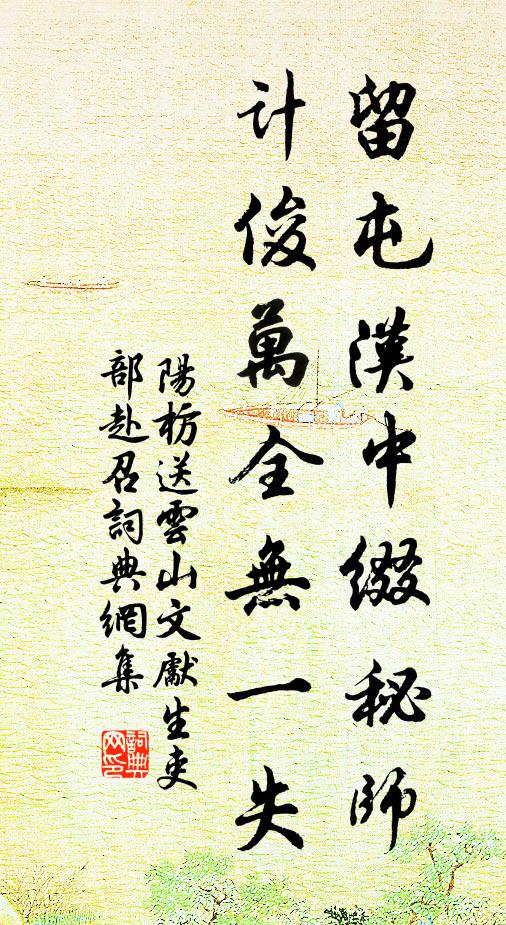 留屯漢中綴秘師
計俊萬全無一失
陽枋送雲山文獻生吏
部赴召詞典網集
詞典
网印